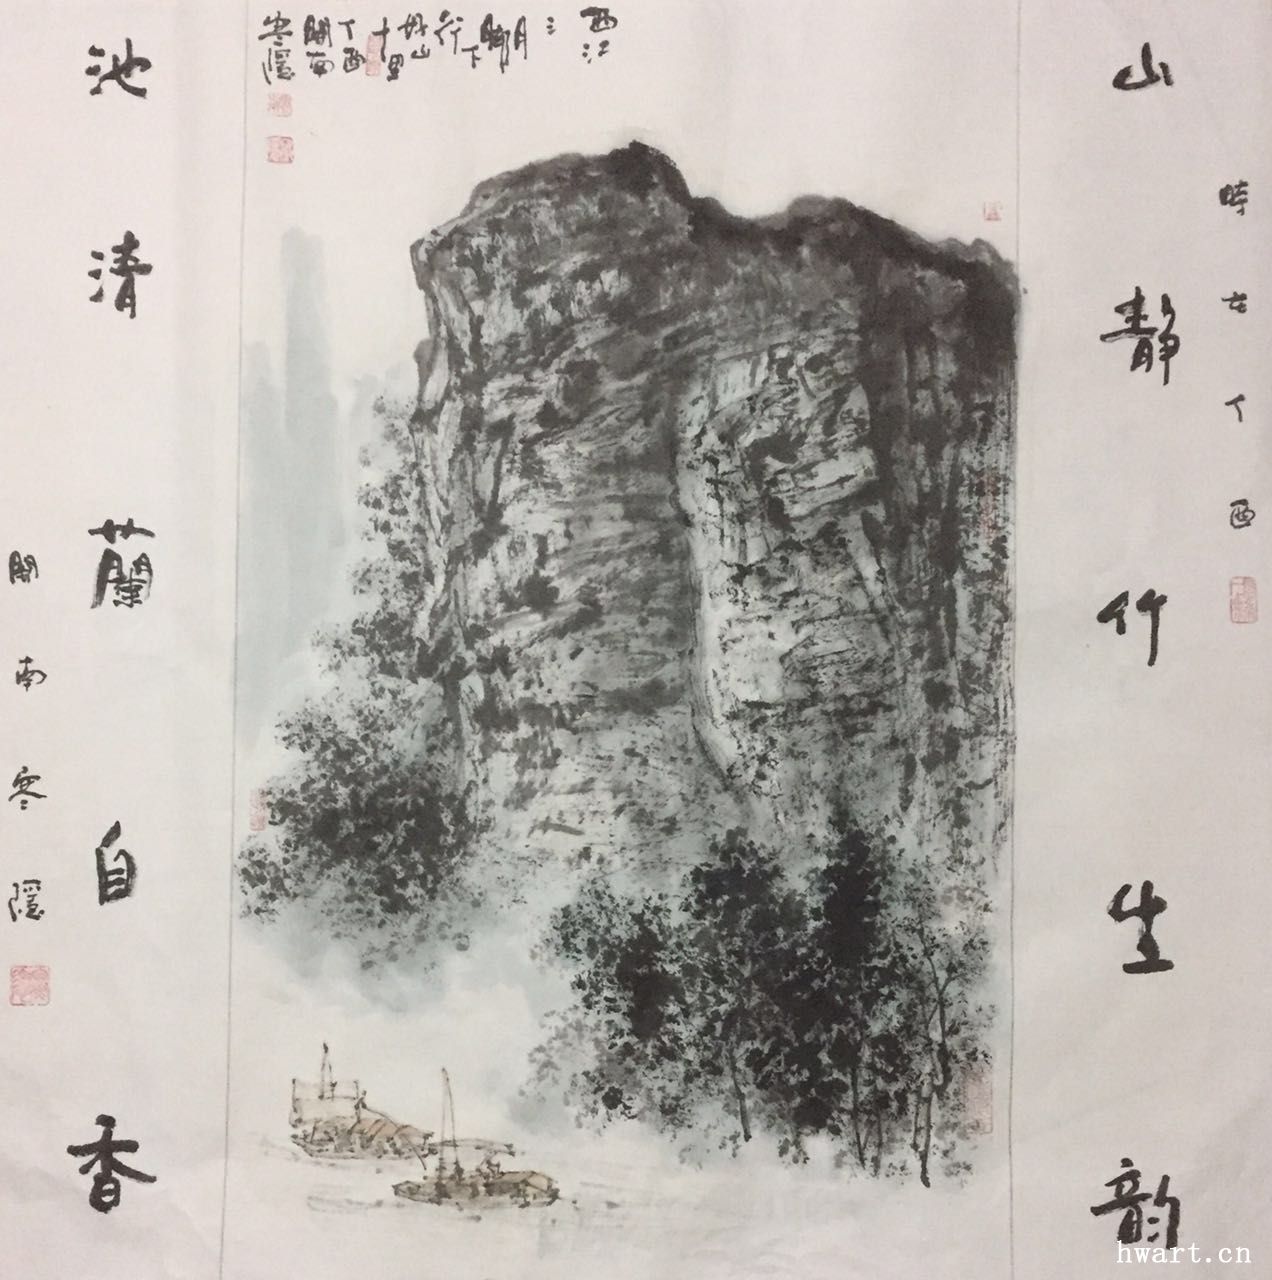 時在丁酉
山静竹生韵
西江
三
月
下
行
山
十里
丁酉
閩南
寒隱
池清蘭自香
閩南寒隱
hwart.cn